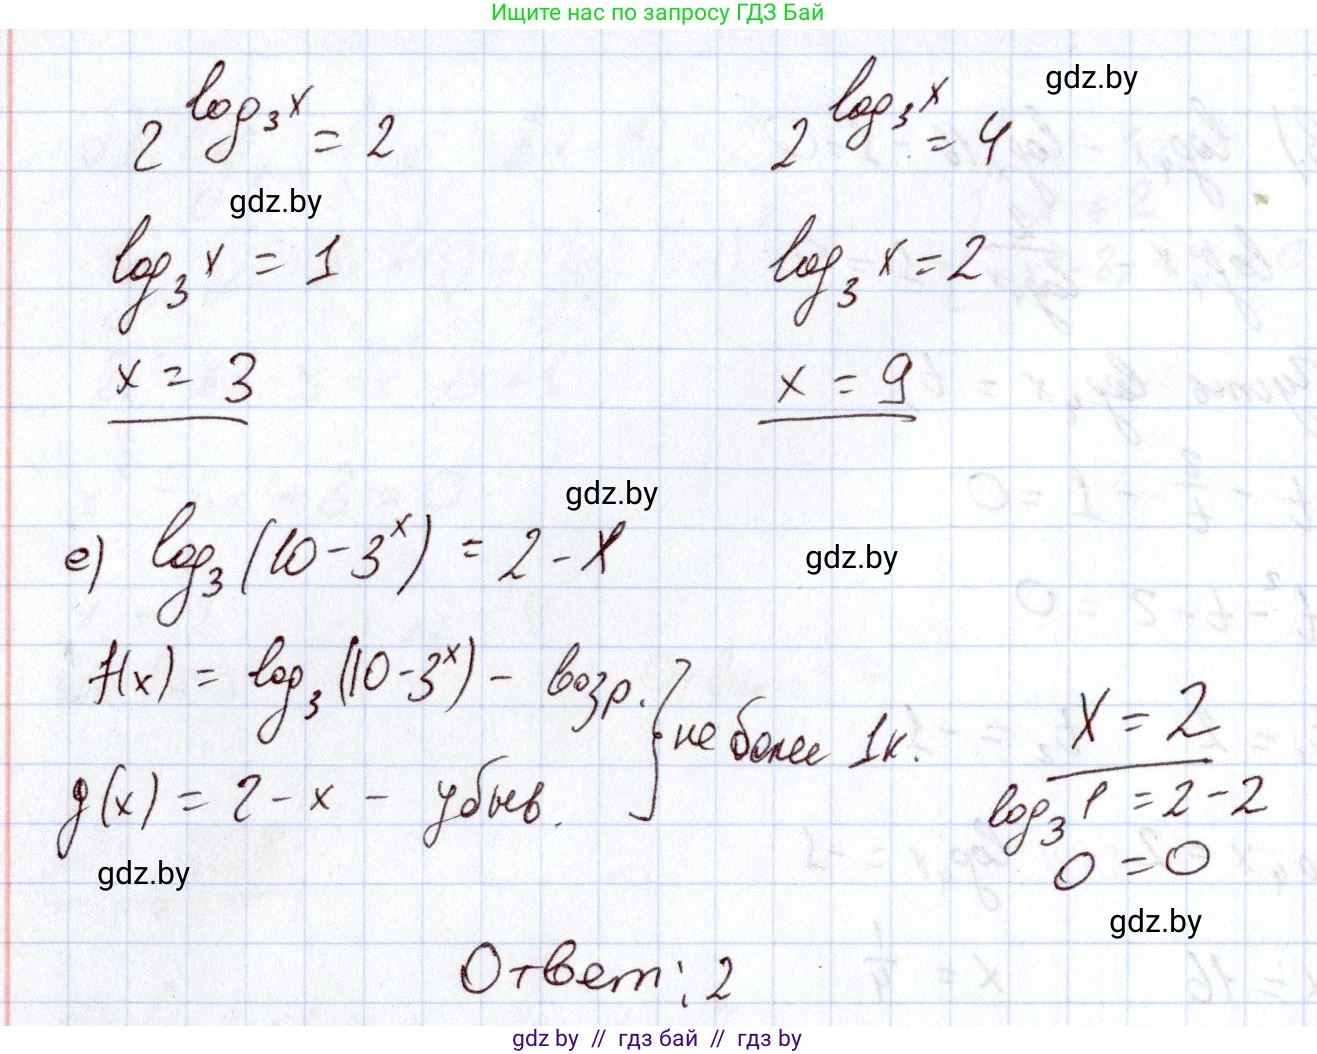 Ищите нас по запросу ГДЗ Бай
gdz.by
2^{log_3 x} = 2
2^{log_3 x} = 4
gdz.by
log_3 x = 1
log_3 x = 2
x = 3
x = 9
gdz.by
е) log_3 (10 - 3^x) = 2 - x
gdz.by
f(x) = log_3 (10 - 3^x) - возр.
g(x) = 2 - x - убыв.
} не более 1к.
x = 2
log_3 1 = 2 - 2
0 = 0
gdz.by
gdz.by
Ответ: 2
gdz.by // гдз бай // гдз by